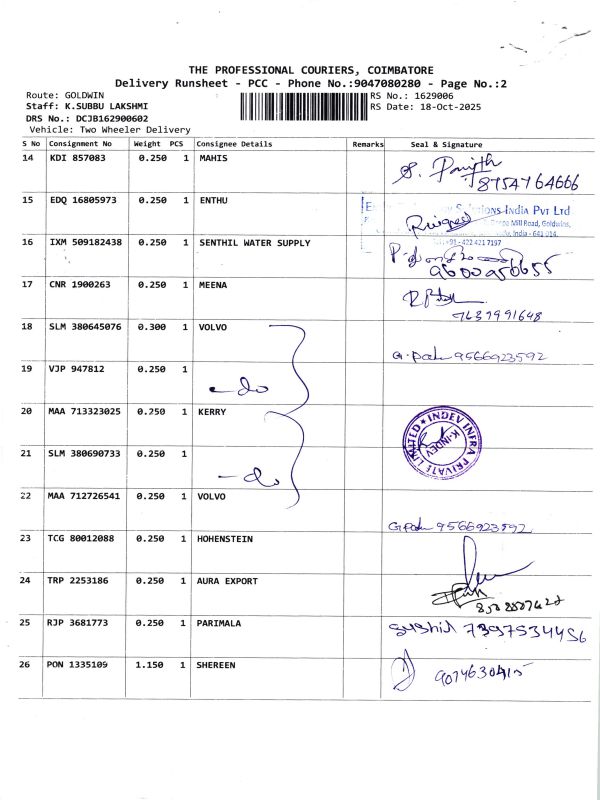 THE PROFESSIONAL COURIERS, COIMBATORE
Delivery Runsheet - PCC - Phone No.:9047080280 - Page No.:2
Route: GOLDWIN RS No.: 1629006
Staff: K.SUBBU LAKSHMI RS Date: 18-Oct-2025
DRS No.: DCJB162900602
Vehicle: Two Wheeler Delivery
S No Consignment No Weight PCS Consignee Details Remarks Seal & Signature
14 KDI 857083 0.250 1 MAHIS
8754764666
15 EDQ 16805973 0.250 1 ENTHU
Solutions India Pvt Ltd
Mill Road, Goldwins,
India - 641 014.
16 IXM 509182438 0.250 1 SENTHIL WATER SUPPLY
+91 - 422 421 7197
9600950655
17 CNR 1900263 0.250 1 MEENA
7639991648
18 SLM 380645076 0.300 1 VOLVO
9566923592
19 VJP 947812 0.250 1
-do
20 MAA 713323025 0.250 1 KERRY
INDEV INFRA PRIVATE LIMITED
K-INDEV
21 SLM 380690733 0.250 1
-do
22 MAA 712726541 0.250 1 VOLVO
9566923592
23 TCG 80012088 0.250 1 HOHENSTEIN
24 TRP 2253186 0.250 1 AURA EXPORT
25 RJP 3681773 0.250 1 PARIMALA
sushil 7397534456
26 PON 1335109 1.150 1 SHEREEN